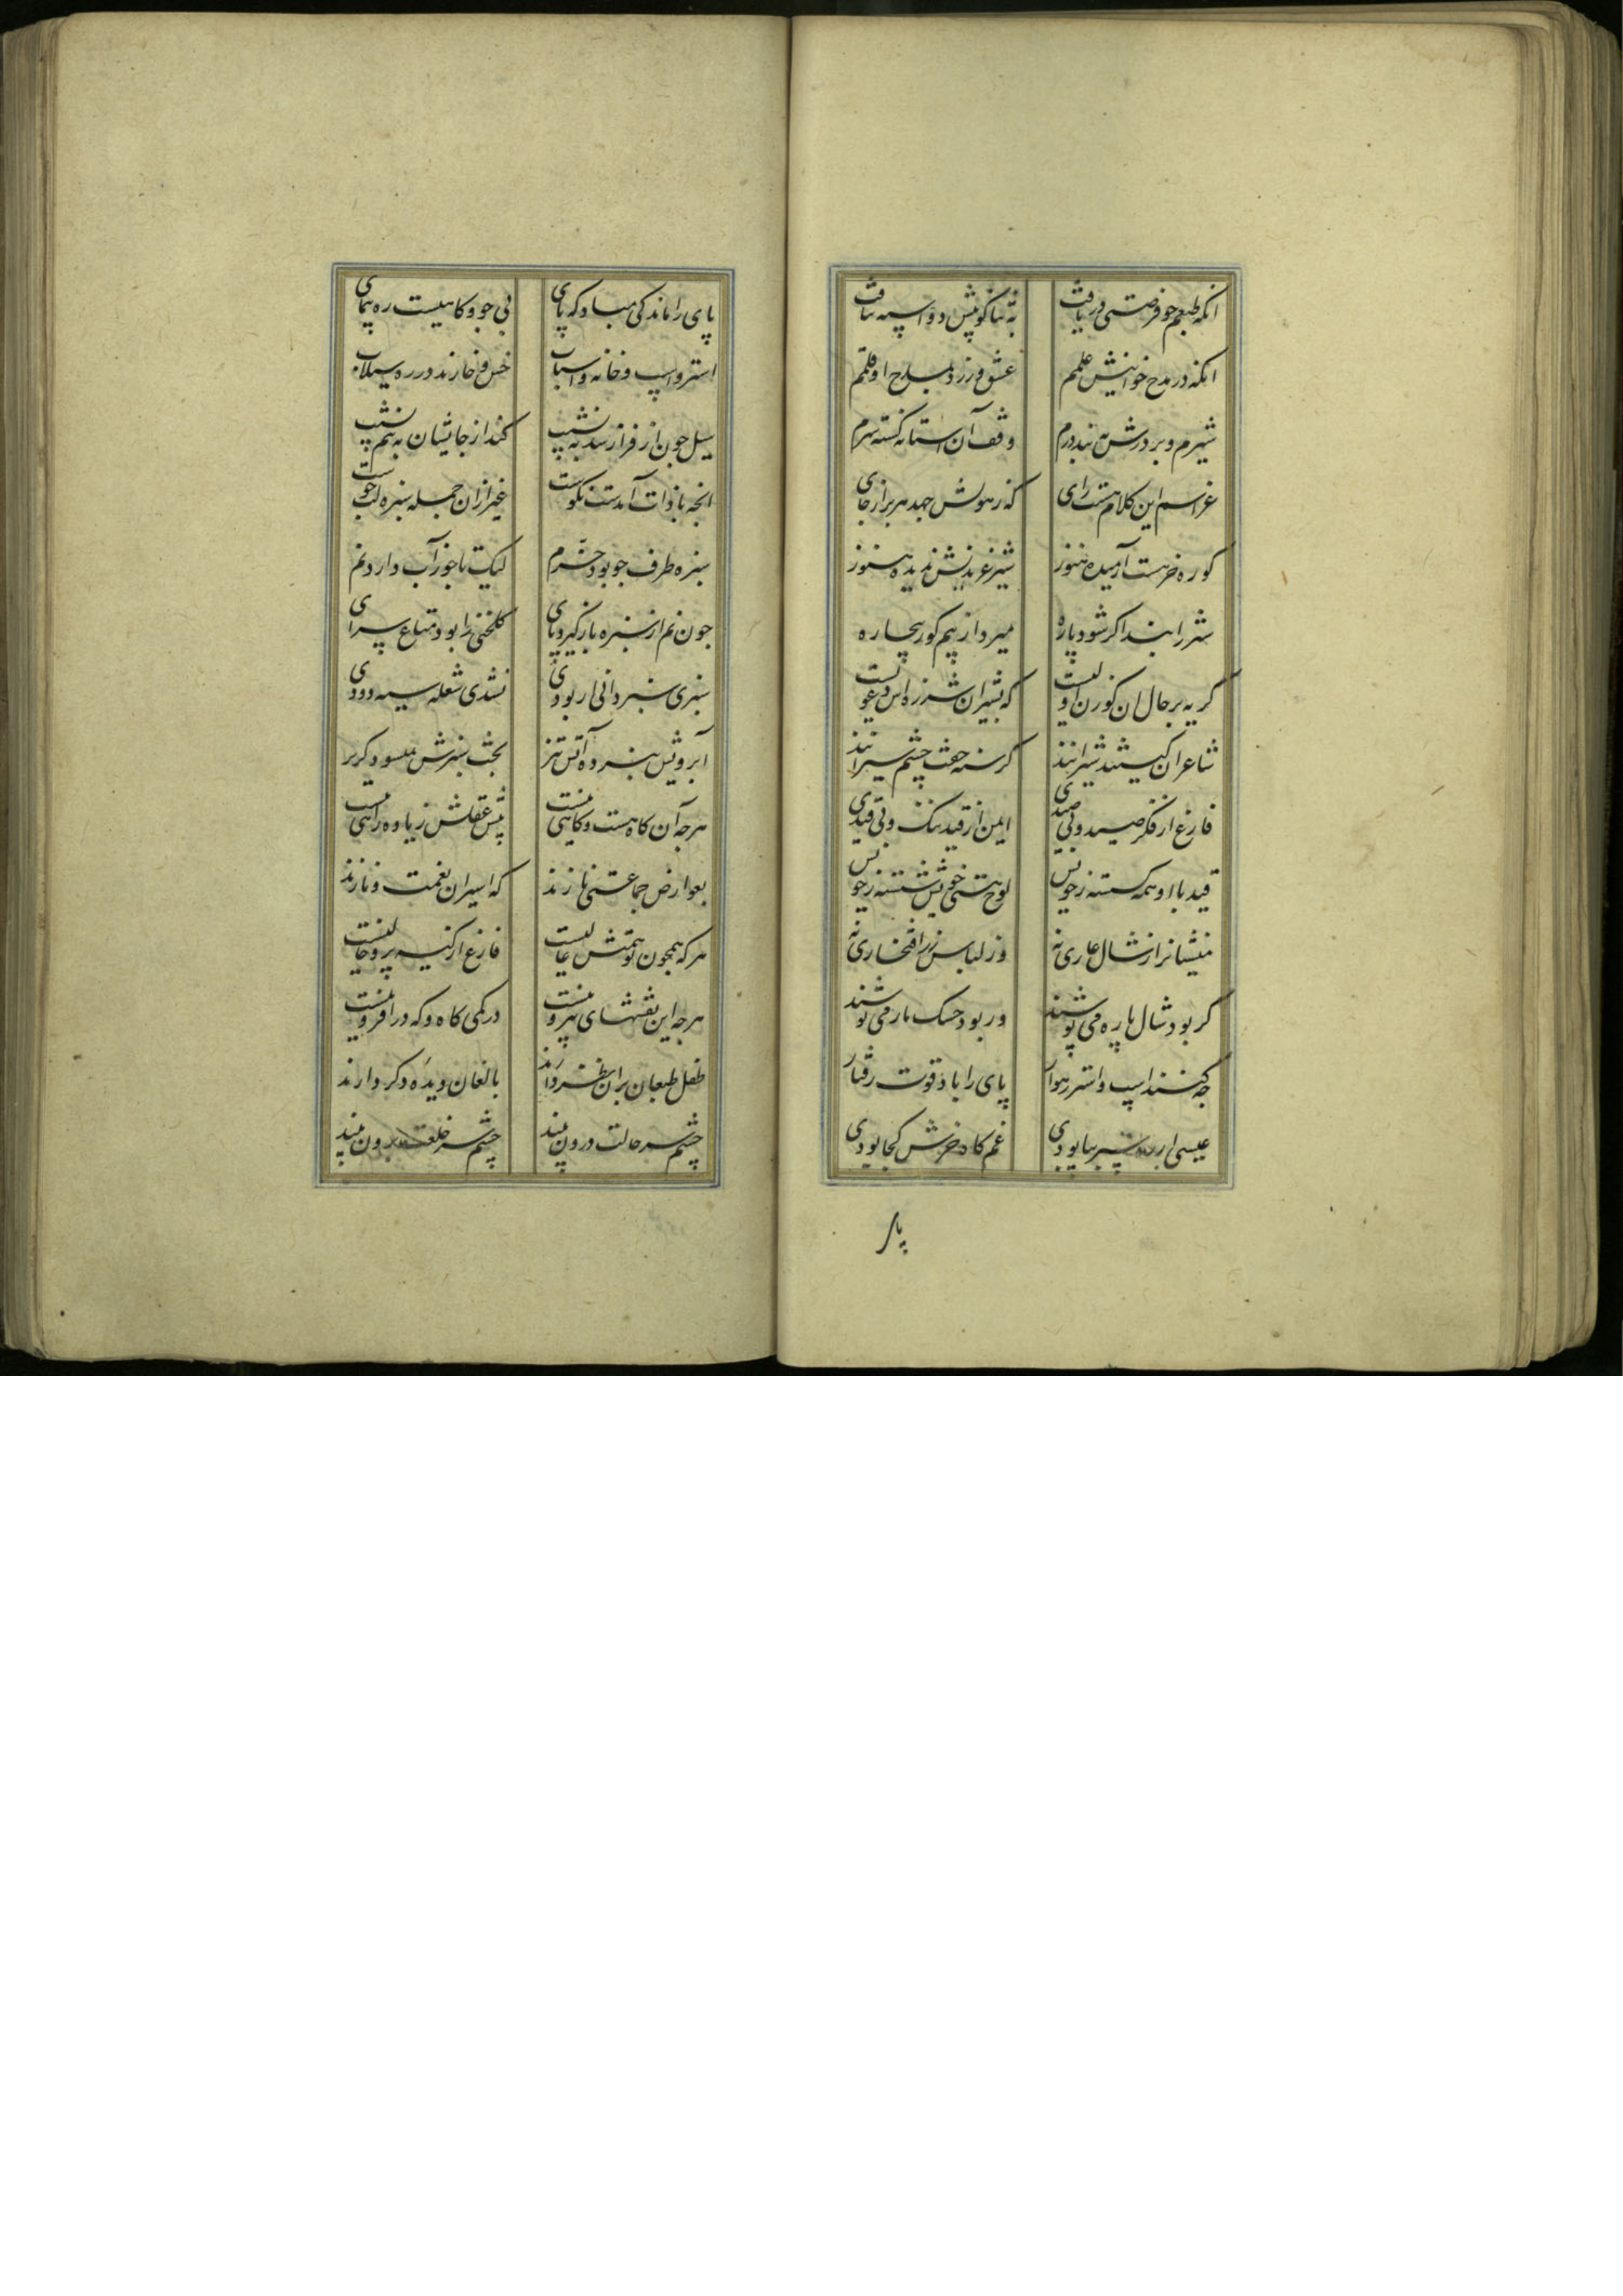 انکه طبعم چو فرصتی دریافت به ثنا کوییش دو اسپه شتافت
انکه در مدح خوانیش علمم عشق ورزد بمدح او قلمم
شیرم و بر درش نه بند درم وقف آن استانه کشته سرم
غرا سم این کلام هست رای که ز هولش جهد هزبر از جای
کوره خر هست آرمیده هنوز شیر غریدنش ندیده هنوز
شررا بند اکر شود پاره میرد از بیم کور بیچاره
کریه بر حال ان کوزن اولیست که بشیران شرزه اش دعویست
شاعران کیستند شیرانند کرسنه خفت چشم سیرانند
فارغ از فکر صید و بی صیدی ایمن از قید ننک و بی قیدی
قید با او همه کسسته ز خویش لوح هستی خویش شسته ز خویش
نیستشانرا ز شال عاری نه وز لباس زر افتخاری نه
کر بود شال پاره می پوشند ور بود خشک پاره می نوشند
چه کنند اسپ و استر رهوار پای را باد قوت رفتار
عیسی ار ره سپر بپا بودی غم کاه خرش کجا بودی
پا
پای را ماندکی مباد که پای بی جو و کاهیست ره پیمای
استر و اسپ و خانه و اسباب خس و خارند در ره سیلاب
سیل چون از فراز شد به نشیب کند از جایشان به بیم نهیب
انچه با ذات آمدست نکوست غیر ازان جمله سبزه لب جوست
سبزه طرف جو بود خرم لیک تا جو ز آب دارد نم
چون نم از سبزه باز کیرد پای کلخنی را بود متاع سرای
سبزی سبزه ذاتی ار بودی نشدی شعله سیه دودی
آبرو پیش سبزه و آتش تیز بخت سبزش نمیسود کریز
هر چه آن کاه هست و کاهی نیست پیش عقلش زیاده راهی نیست
بعوارض جماعتی نازند که اسیران نعمت و نازند
هر که همچون تو همتش عالیست فارغ از کیسه پر و خالیست
هر چه این نقشهای بیرونیست در کمی کاه و که در افزونیست
طفل طبعان بران نظر دارند بالغان دیده دکر دارند
چشم سر حالت درون بیند چشم سر خلعت برون بیند